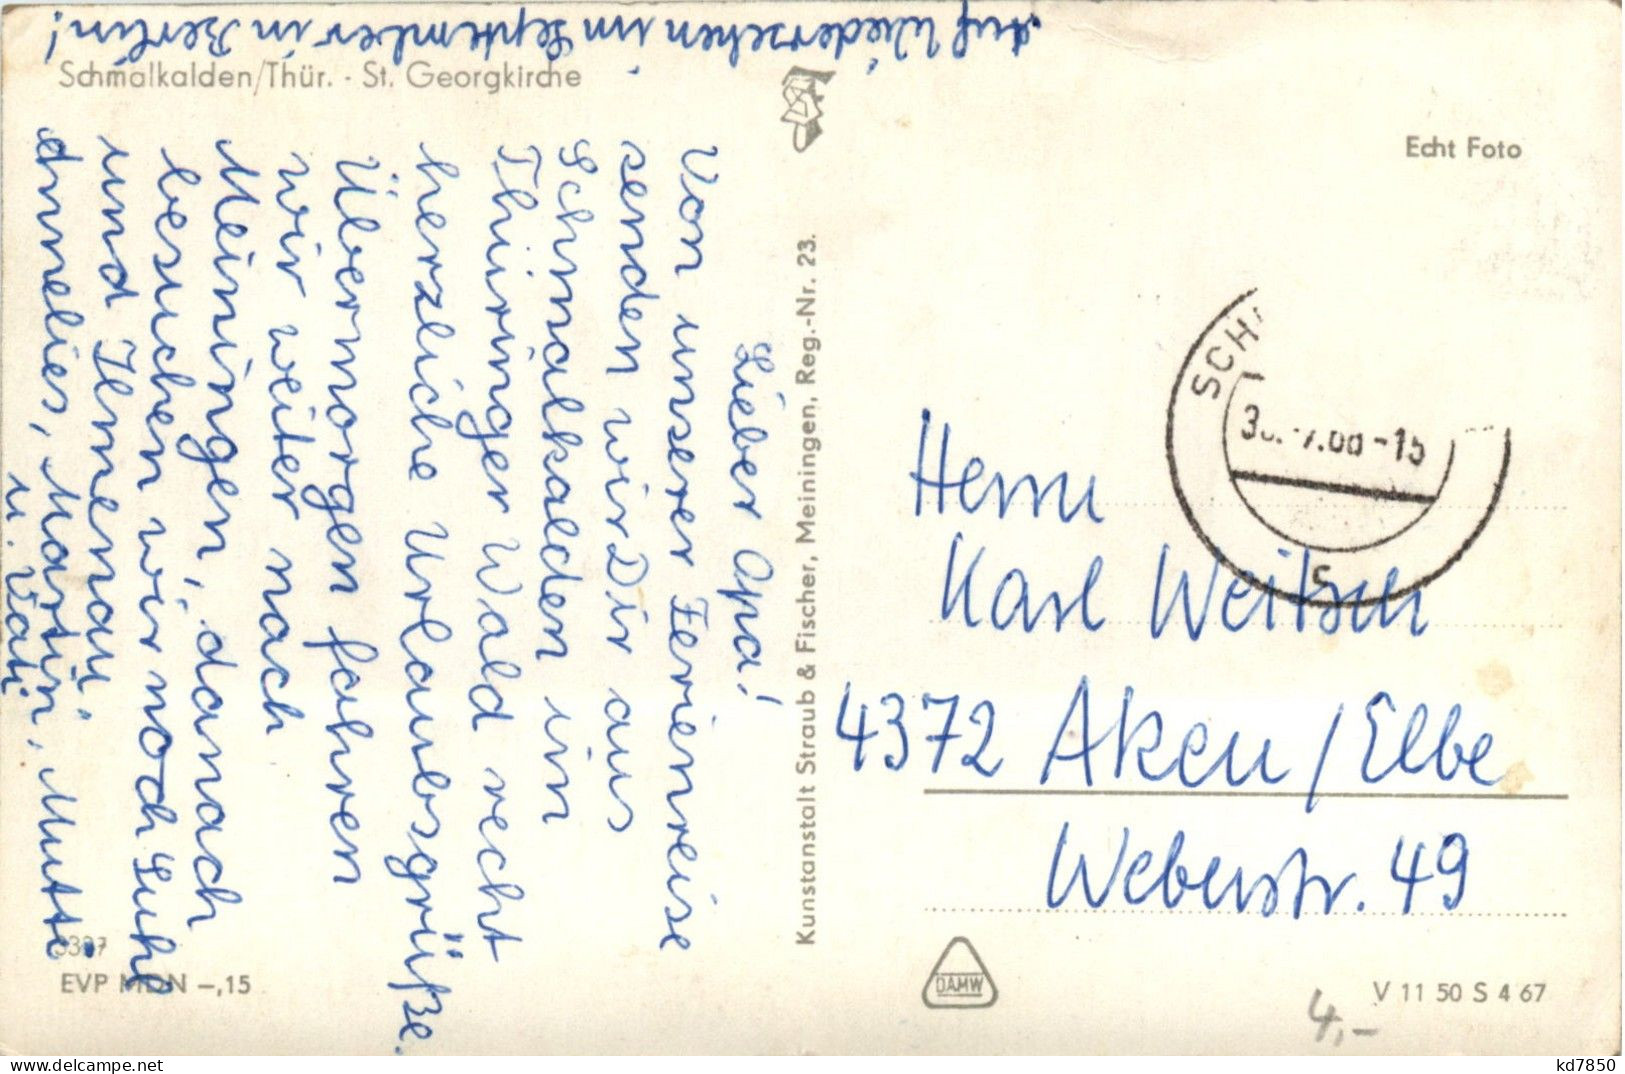 Auf Wiedersehen im September in Berlin!
Schmalkalden/Thür. · St. Georgkirche
Lieber Opa!
Von unserer Ferienreise
senden wir Dir aus
Schmalkalden im
Thüringer Wald recht
herzliche Urlaubsgrüße.
Übermorgen fahren
wir weiter nach
Meiningen, danach
besuchen wir noch Suhl
und Ilmenau.
Annelies, Martin, Mutti
u. Vati
EVP MDN –,15
Kunstanstalt Straub & Fischer, Meiningen, Reg.-Nr. 23.
Echt Foto
SCH
-15
Herrn
Karl Weitsch
4372 Aken/Elbe
Weberstr. 49
DAMW
V 11 50 S 4 67
4,–
kd7850